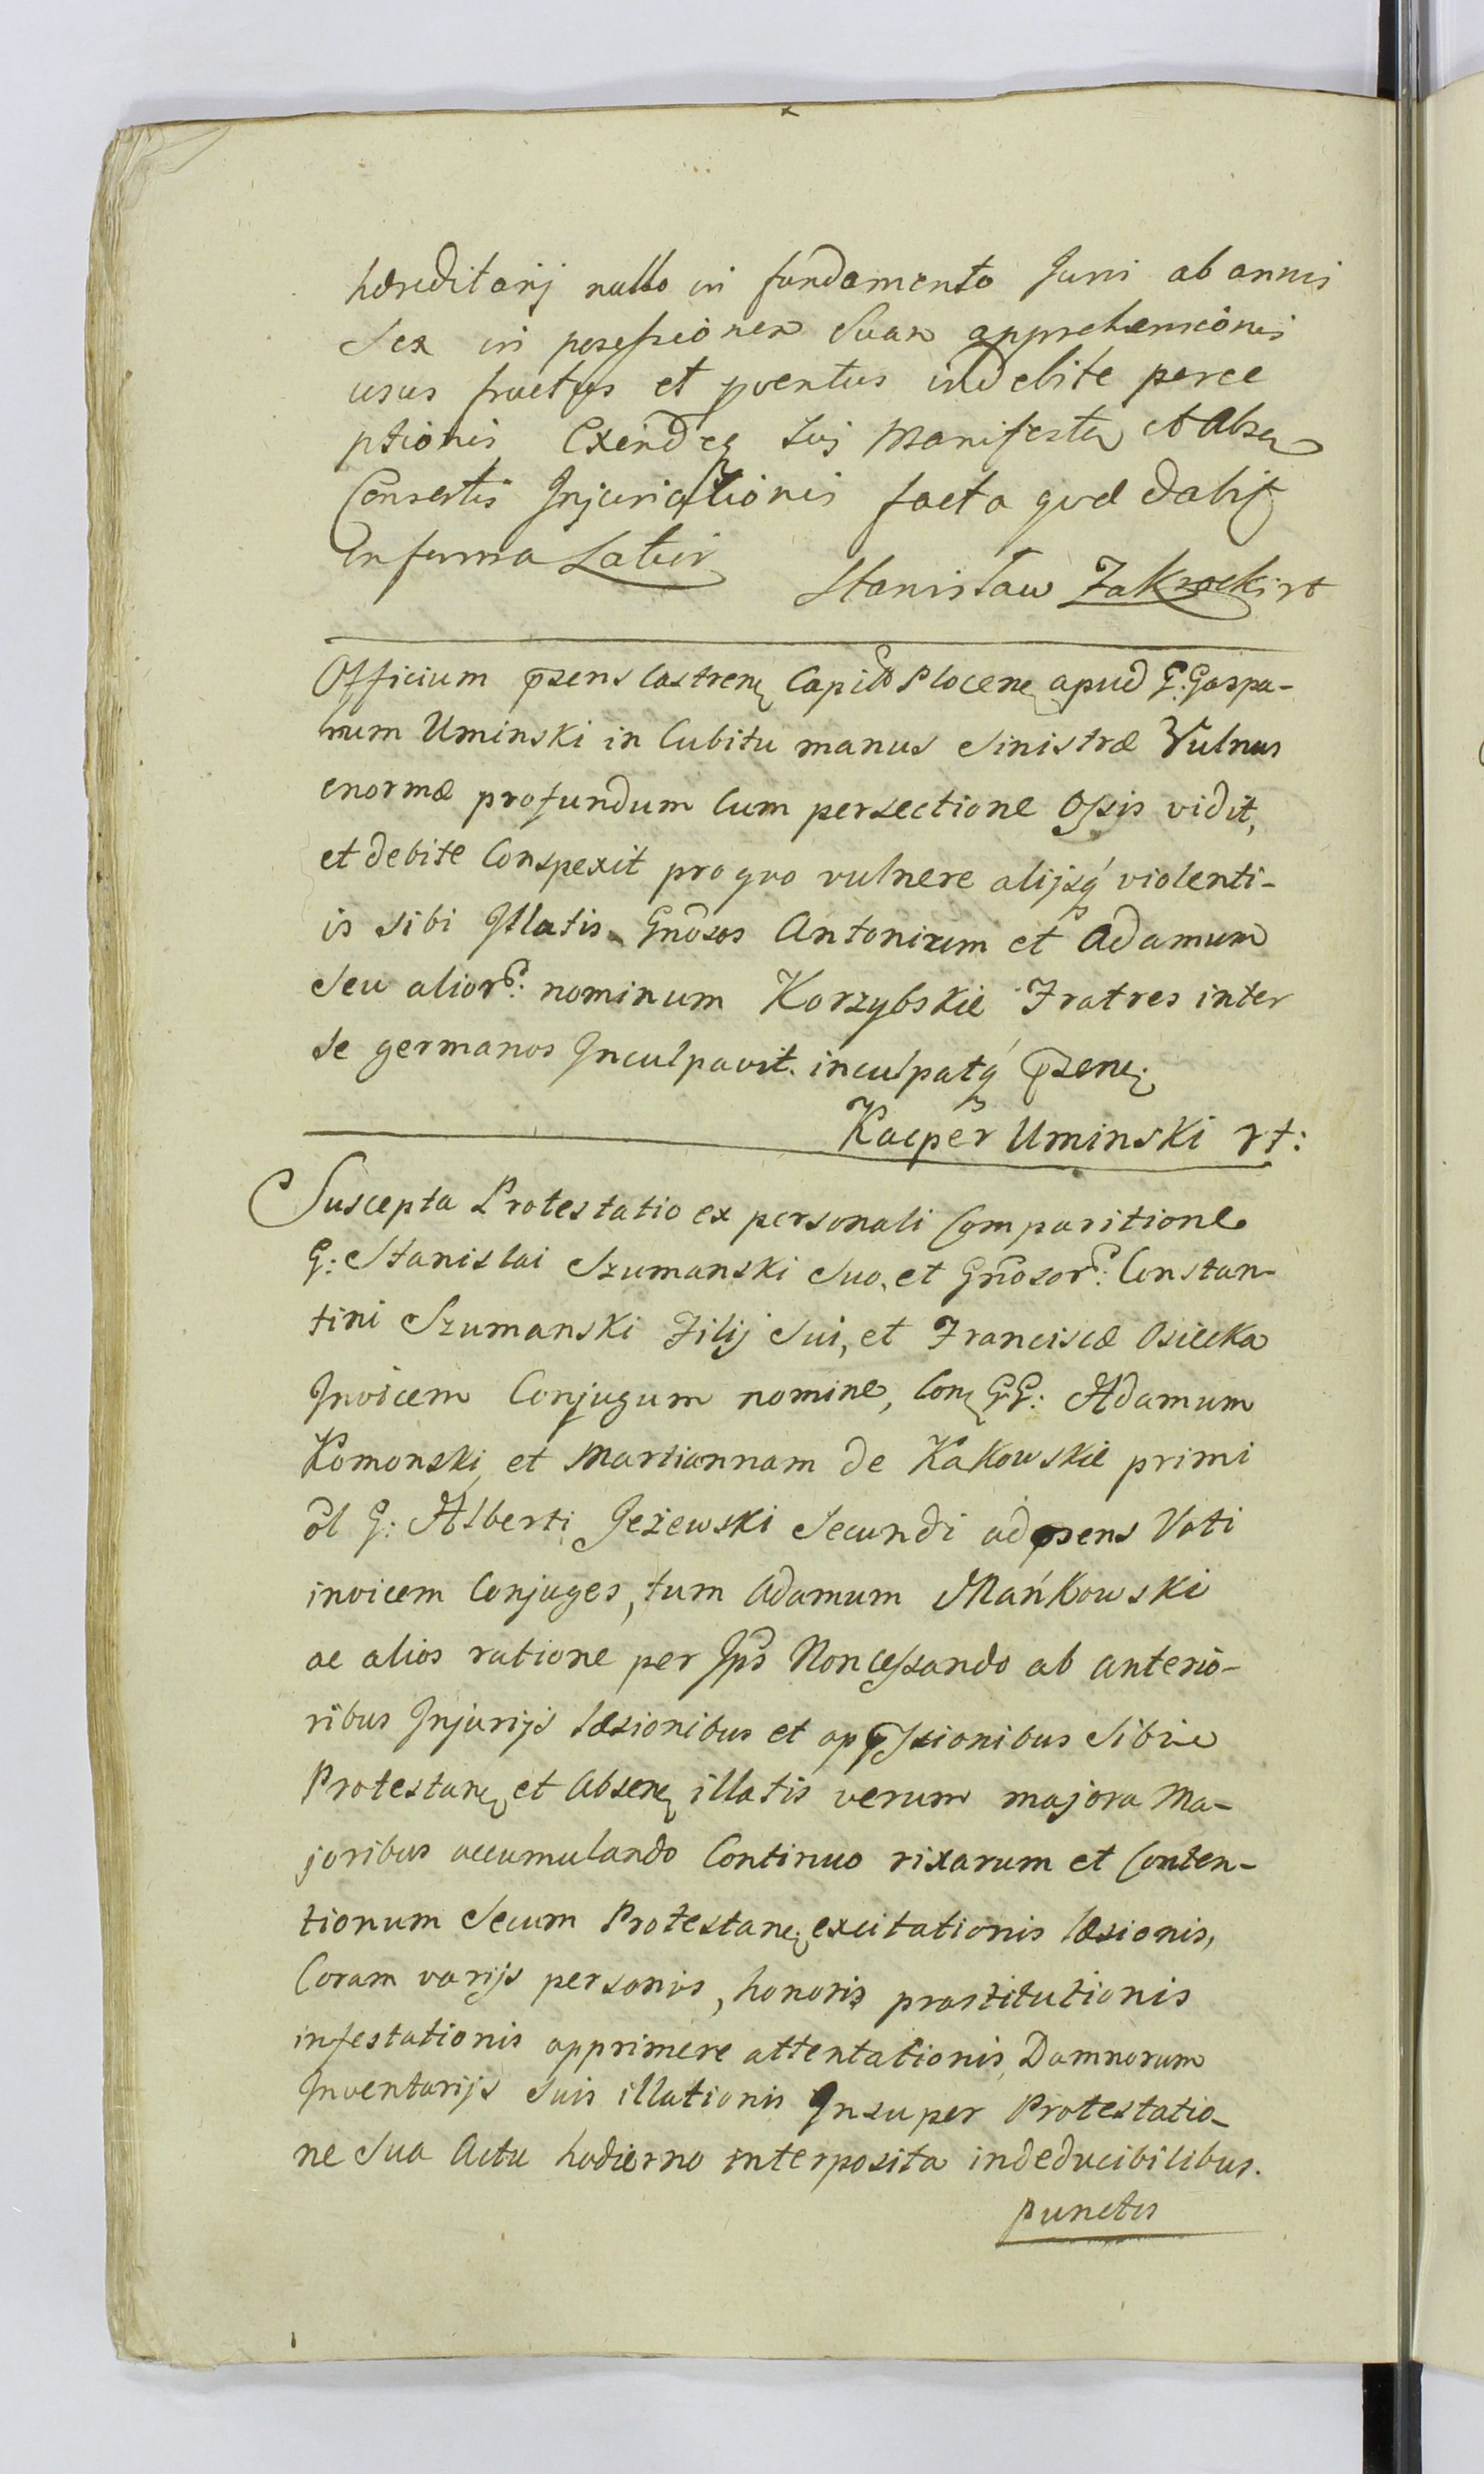 hæreditarij nullo in fundamento Juris ab annis
Sex in possessionem Suam apprehensionis
usus fructus et pventus indebite perce
ptionis Exindeq Sui Manifestan et Absen
Consortis Injuriationis facta quæ dabit
In forma Latior
Stanisław Zakrocki rt
Officium p̃sens Castren Capitle Plocen apud G: Gaspa-
rum Uminski in Cubitu manus Sinistræ Vulnus
enormæ profundum Cum persectione Ossis vidit,
et debite Conspexit pro quo vulnere alijsq́ violenti-
is sibi Illatis Gñosos Antonium et Adamum
Seu alior: nominum Korzybskie Fratres inter
se germanos Inculpavit inculpatq́ p̃sen
Kacper Uminski rt:
Suscepta Protestatio ex personali Comparitione
G: Stanislai Szumanski Suo, et Gñosor: Constan-
tini Szumanski Filij Sui, et Franciscæ Osiecka
Invicem Conjugum nomine, Con GG: Adamum
Komonski et Mariannam de Kakowskie primi
ol G: Alberti Jeżewski Secundi ad p̃sens Voti
invicem Conjuges, tum Adamum Mańkowski
ac alios ratione per Ip̃s Non cessando ab anterio-
ribus Injurijs læsionibus et opp̃ssionibus Sibi
Protestan et Absen illatis verum majora Ma-
joribus accumulando Continuo rixarum et Conten-
tionum Secum Protestan excitationis læsionis,
Coram varijs personis, honoris prostitutionis
infestationis opprimere attentationis Damnorum
Inventarijs Suis illationis Insuper Protestatio-
ne Sua Actu hodierno interposita indeducibilibus.
punctis